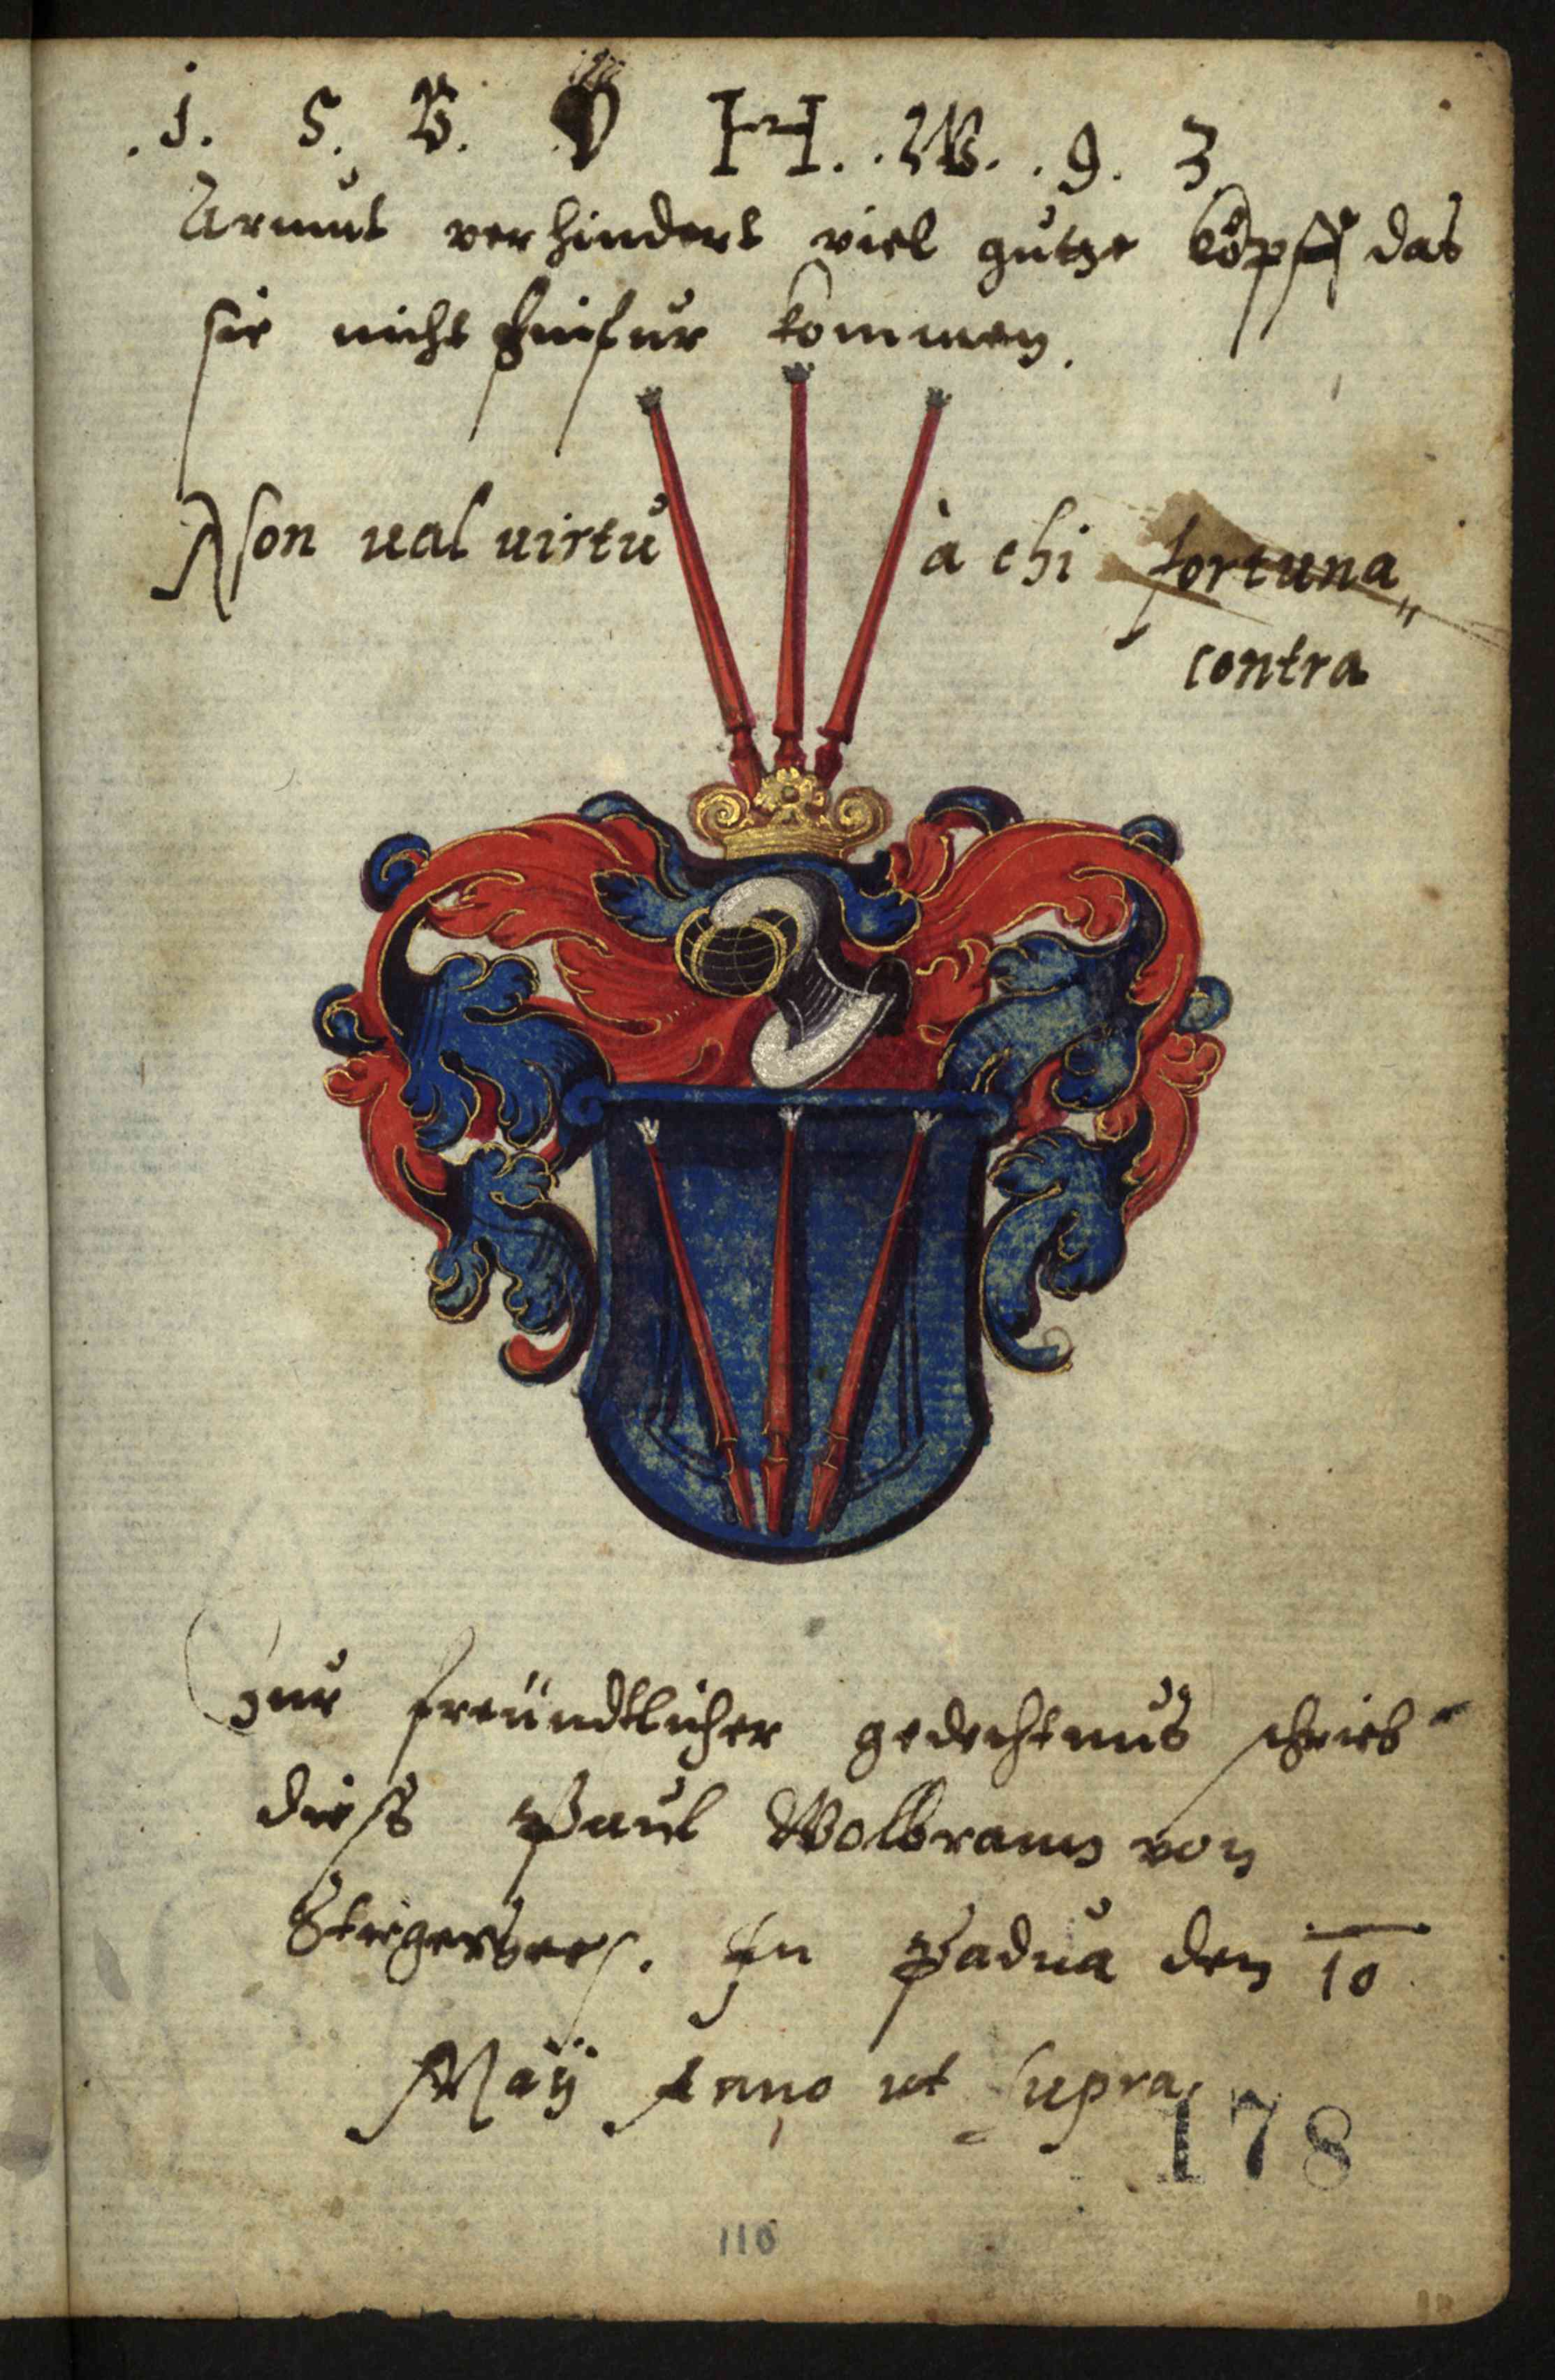 .1. 5. B. H. .W. .9. 3
Armut verhindert viel gutze köpff das
sie nicht hinfur kommen.
Non ual uirtù à chi fortuna„
contra
Zur freündtlicher gedechtnus schrieb
diess Paul Wolbram von
In Padua den 10
Maÿ Anno ut supra,
178
110